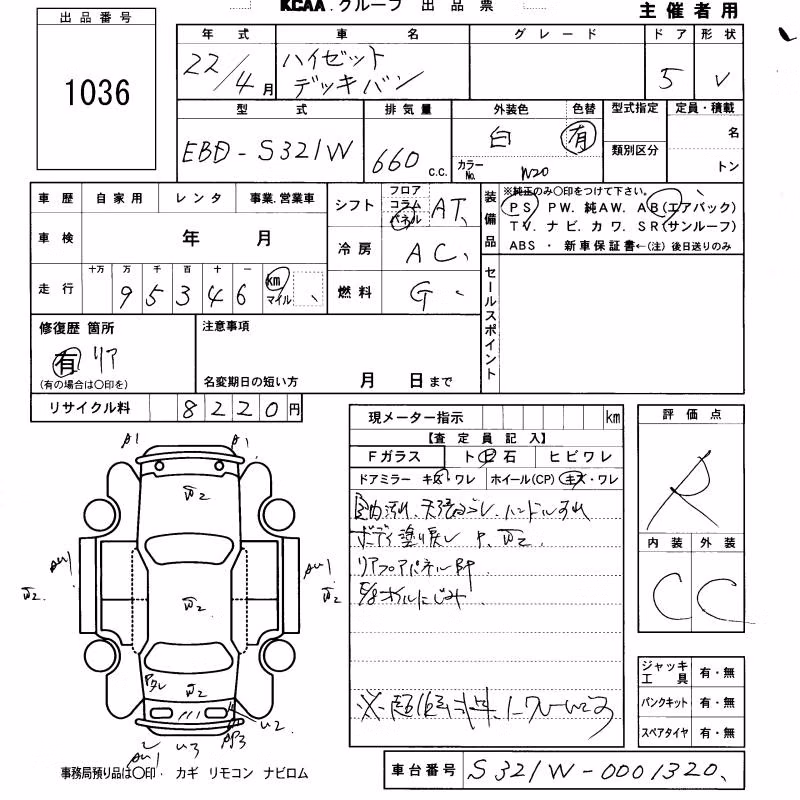 KCAA.グループ 出品票
主催者用
出品番号
1036
年式 車名 グレード ドア 形状
22/4月 ハイゼット デッキバン 5 V
型式 排気量 外装色 色替 型式指定 定員・積載
EBD-S321W 660 C.C. 白 有 類別区分 名
カラーNo. W20 トン
車歴 自家用 レンタ 事業.営業車
車検 年 月
走行 十万 万 千 百 十 一
9 5 3 4 6 km マイル
シフト フロア コラム パネル AT
冷房 AC
燃料 G
装備品 ※純正のみ〇印をつけて下さい。
PS PW. 純AW. AB(エアバック)
TV. ナビ. カワ. SR(サンルーフ)
ABS ・ 新車保証書←(注)後日送りのみ
セールスポイント
修復歴 箇所
有 リア
(有の場合は〇印を)
注意事項
名変期日の短い方 月 日まで
リサイクル料 8220円
現メーター指示 km
【査定員記入】
Fガラス トビ石 ヒビワレ
ドアミラー キズ・ワレ ホイール(CP) キズ・ワレ
ボディ塗り戻し P. W2.
リアフロアパネルBP
E/gオイルにじみ
評価点
R
内装 外装
C C
A1 A1
W2
AU1 AU1
W2 W2 W2
W2
U2
U3
ジャッキ工具 有・無
パンクキット 有・無
スペアタイヤ 有・無
事務局預り品は〇印・ カギ リモコン ナビロム
車台番号 S321W-0001320